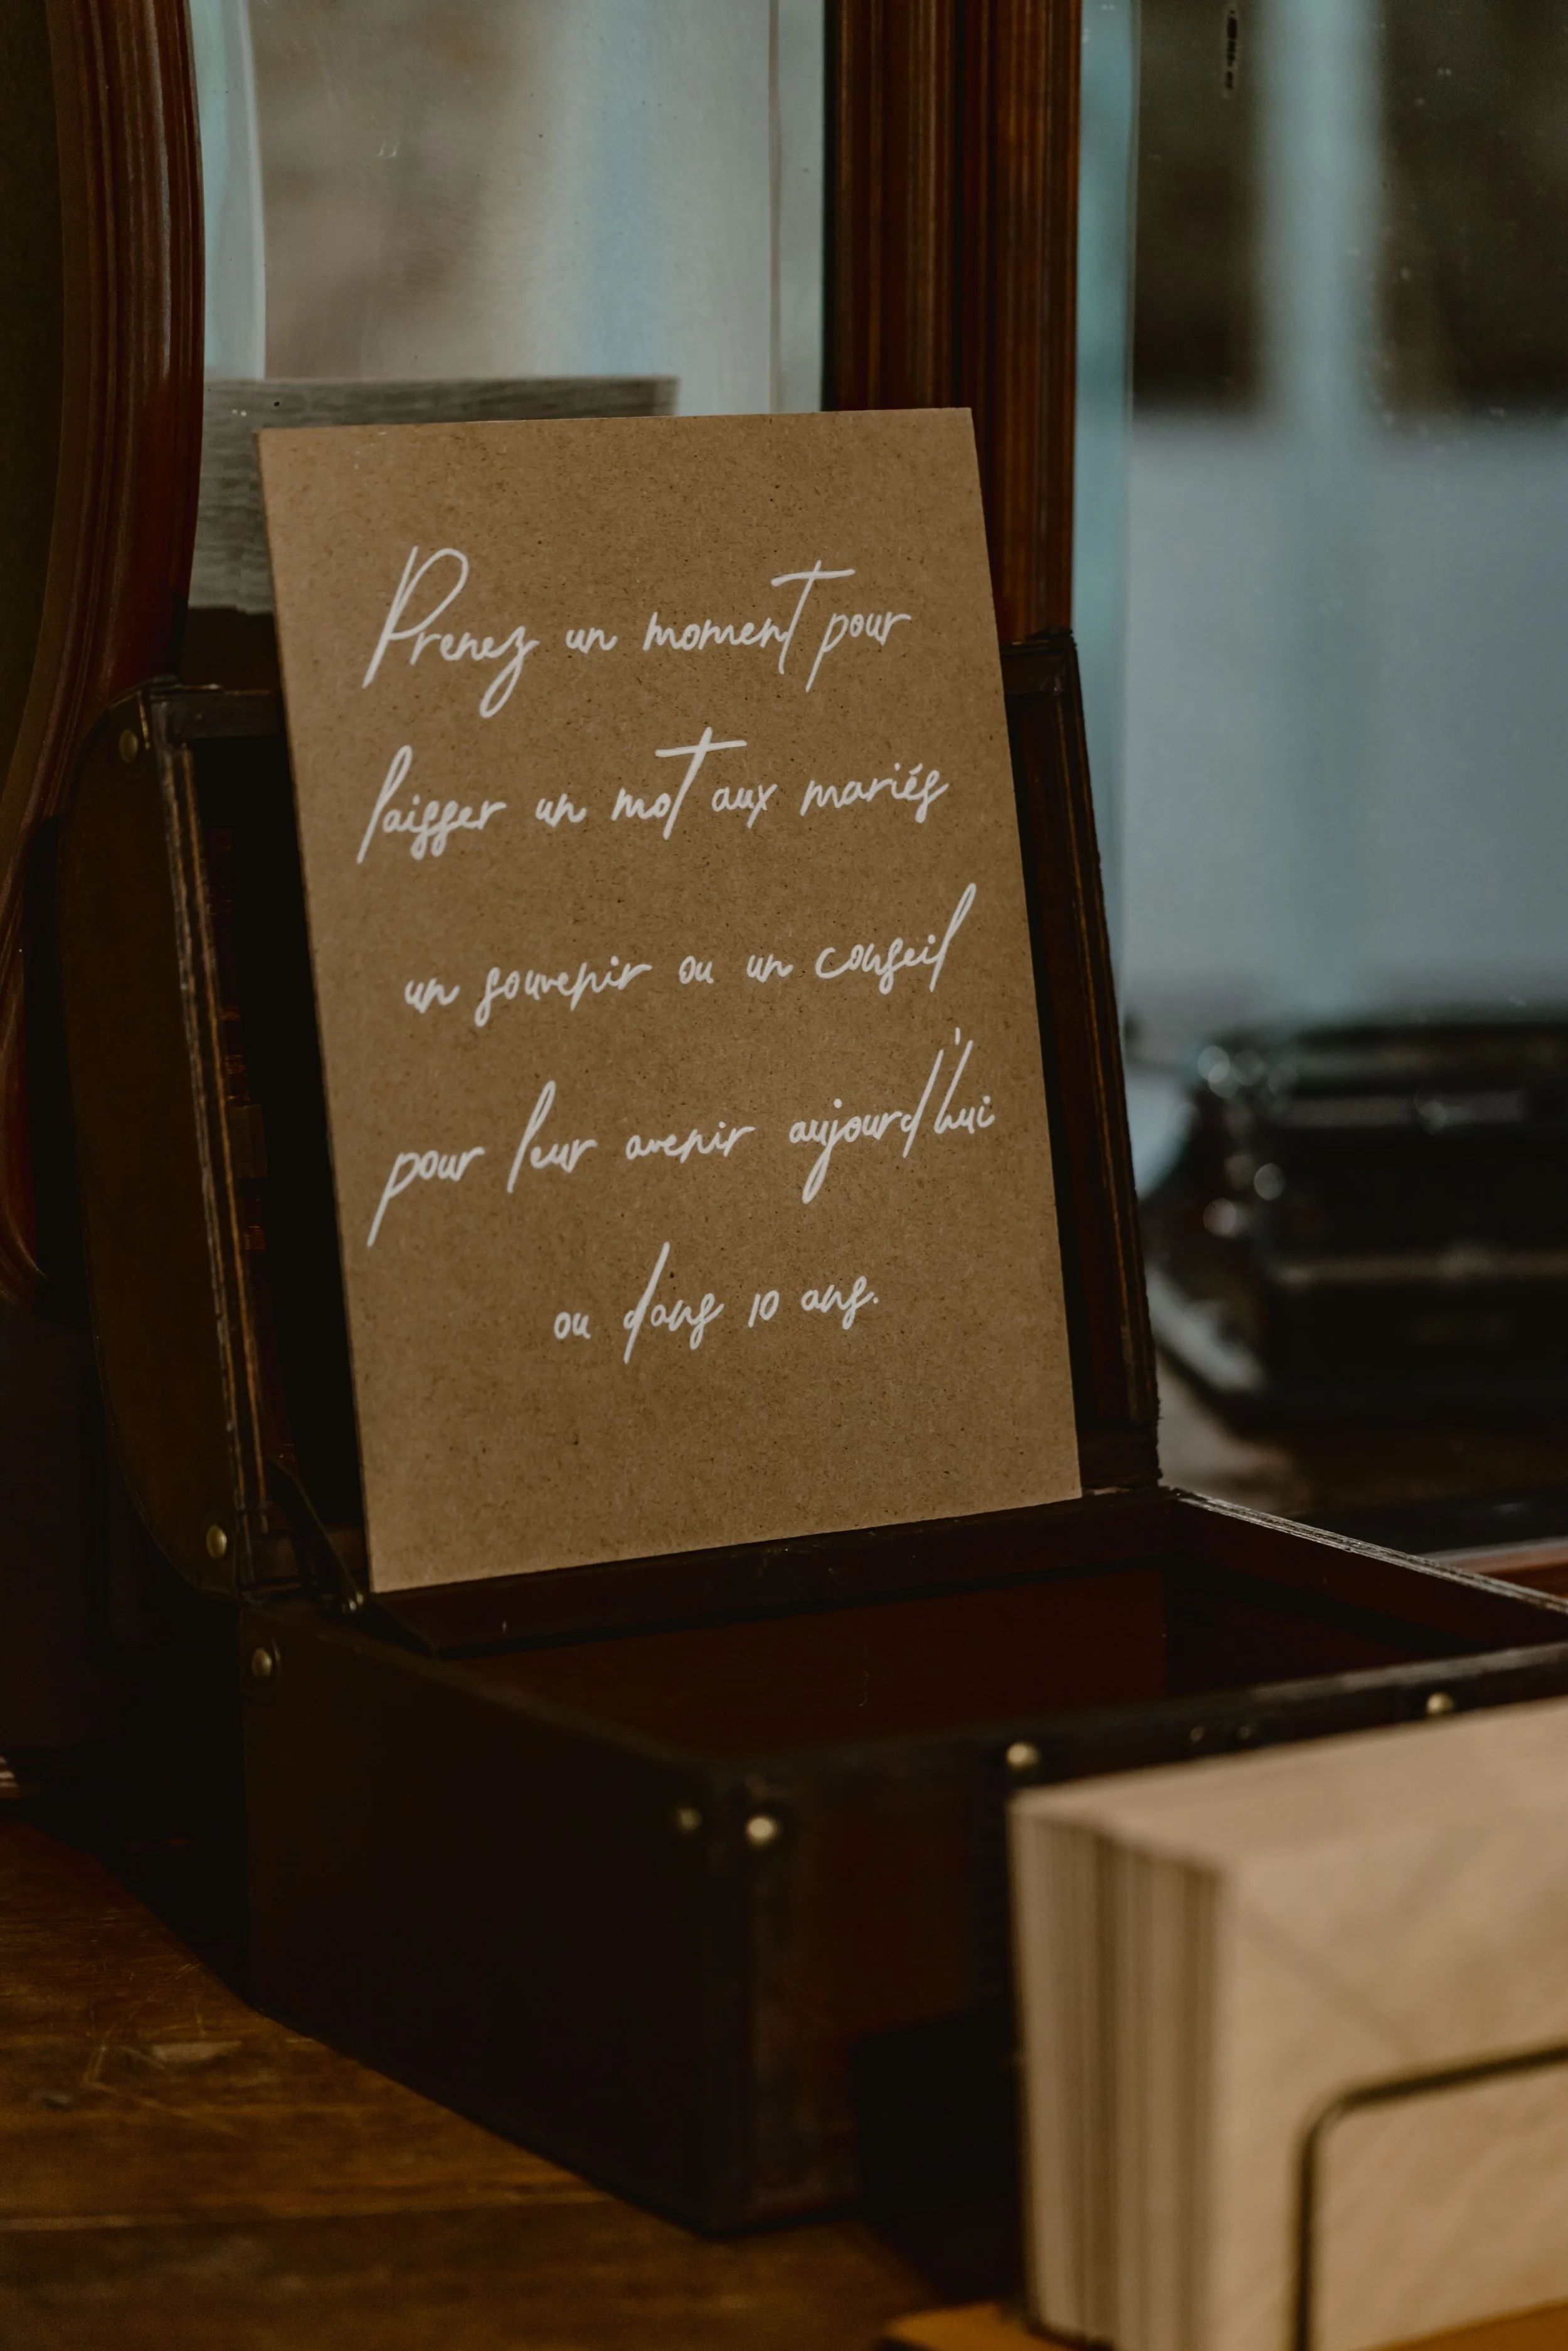 Prenez un moment pour
laisser un mot aux mariés
un souvenir ou un conseil
pour leur avenir aujourd'hui
ou dans 10 ans.